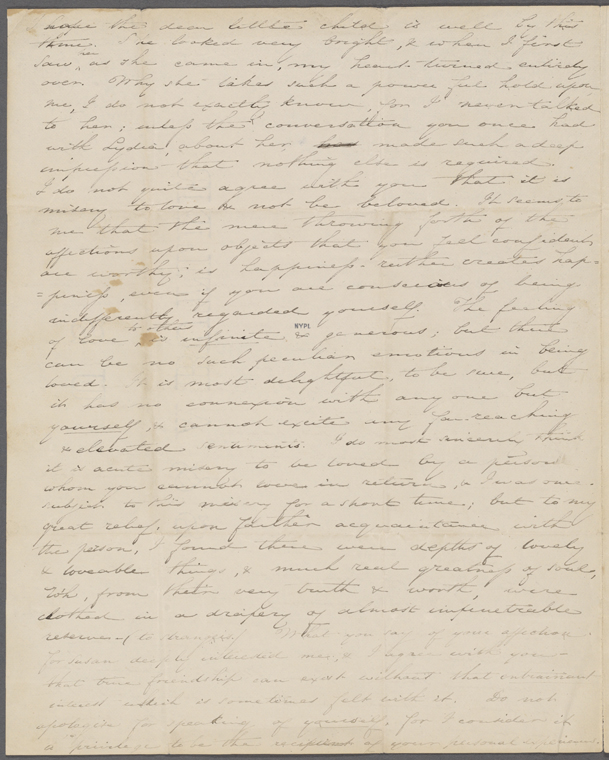 hope the dear little child is well by this
time. She looked very bright, & when I first
saw her as she came in, my heart turned entirely
over. Why she takes such a powerful hold upon
me, I do not exactly know, for I never talked
to her; unless the conversation you once had
with Lydia, about her made such a deep
impression that nothing else is required.
I do not quite agree with you that it is
misery to love & not be beloved. It seems to
me that the mere throwing forth of the
affections upon objects that you feel confident
are worthy, is happiness - rather creates hap-
=piness, even if you are conscious of being
indifferently regarded yourself. The feeling
of love to others is infinite & generous; but there
NYPL
can be no such peculiar emotions in being
loved. It is most delightful, to be sure, but
it has no connexion with any one but
yourself, & cannot excite any far-reaching
& elevated sentiments. I do most sincerely think
it is acute misery to be loved by a person
whom you cannot love in return, & I was once
subject to this misery for a short time; but to my
great relief, upon farther acquaintance with
the person, I found there were depths of lovely
& loveable things, & much real greatness of soul,
wh, from their very truth & worth, were
clothed in a drapery of almost impenetrable
reserve - (to strangers). What you say of your affection
for Susan deeply interested me, & I agree with you -
that true friendship can exist without that
interest which is sometimes felt with it. Do not
apologize for speaking of yourself, for I consider it
a privilege to be the recipient of your personal experience